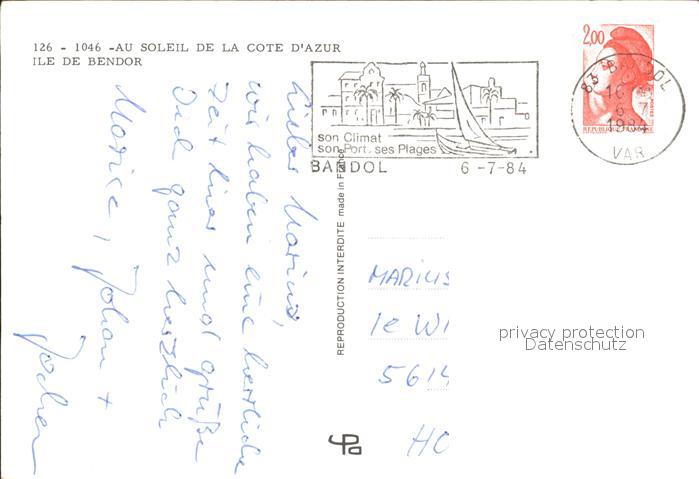 126 - 1046 -AU SOLEIL DE LA COTE D'AZUR
ILE DE BENDOR
Lieber Marius,
wir haben eine herrliche
Zeit hier und grüße
Dich ganz herzlich
Johan +
Jochen
son Climat
son Port. ses Plages
BANDOL 6 -7-84
2,00
REPUBLIQUE FRANÇAISE
83 BANDOL
6
1984
VAR
REPRODUCTION INTERDITE made in France
MARIUS
Ie WI
5614
HO
privacy protection
Datenschutz